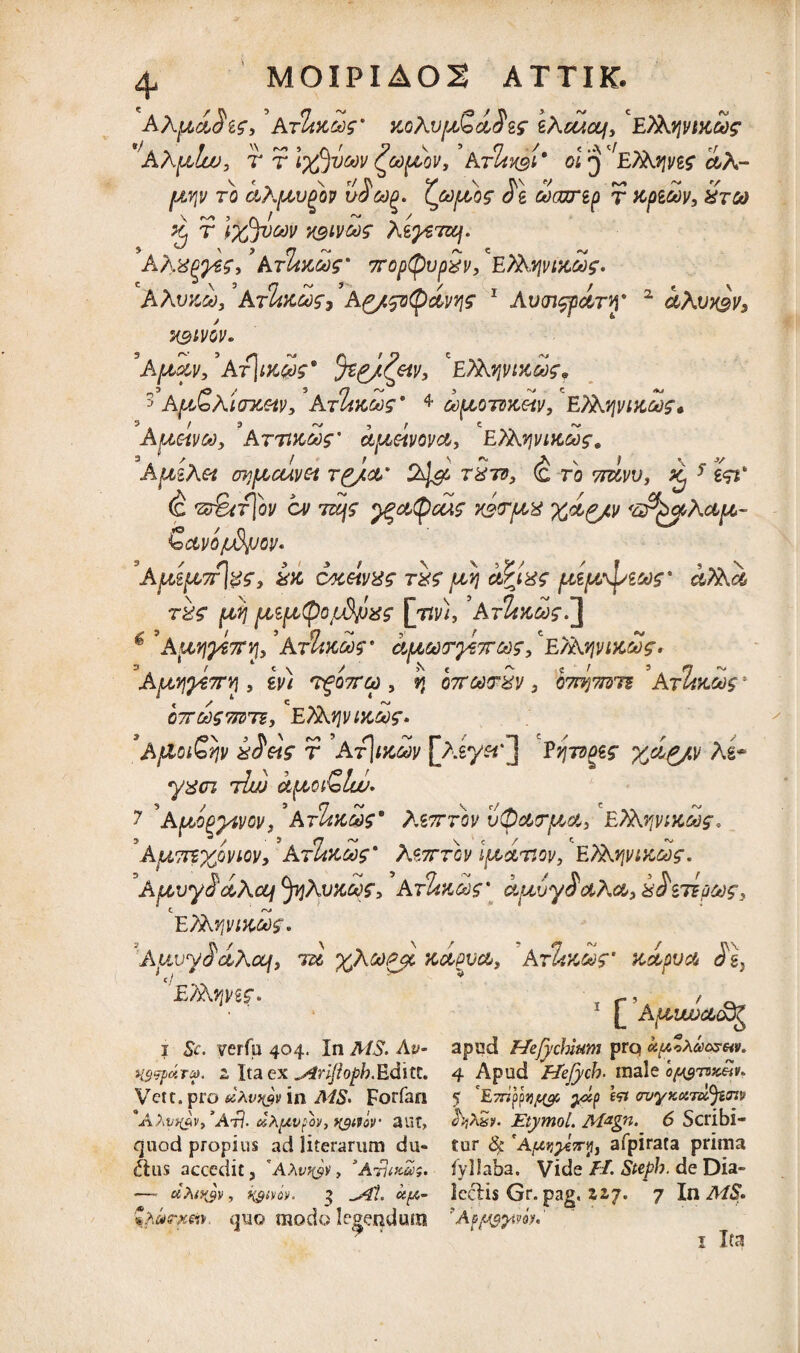 4 ΜΟΙΡΙΔΟΣ ΑΤΤΙΚ.
Ἁλμάδες, Ἀττικῶς· κολυμβάδες ἐλαῖαι, Ἑλληνικῶς
Ἅλμην, τ τ ἰχθύων ζωμὸν, Ἀττικοί· οἱ ᾗ Ἕλληνες ἅλ-
μην τὸ ἁλμυρὸν ὕδωρ. ζωμὸς δὲ ὥσπερ τ κρεῶν, ȣ̔́τω
ϗ τ ἰχθύων κοινῶς λέγεται.
Ἁλȣργὲς, Ἀττικῶς· πορφυρȣ͂ν, Ἑλληνικῶς.
Ἁλυκῶ, Ἀττικῶς, Ἀριστοφάνης ¹ Λυσιςράτῃ· ² ἁλυκὸν,
κοινόν.
Ἀμᾶν, Ἀττικῶς· θερίζειν, Ἑλληνικῶς.
³ Ἀμβλίσκειν, Ἀττικῶς· ⁴ ὠμοτοκεῖν, Ἑλληνικῶς.
Ἀμείνω, Ἀττικῶς· ἀμείνονα, Ἑλληνικῶς.
Ἀμέλει σημαίνει τρία· Διὰ τȣ͂το, ϗ τὸ πάνυ, ϗ ⁵ ἔςι·
ϗ τὸ αἴτιον ἐν ταῖς γραφαῖς κόσμȣ χάριν παραλαμ-
βανόμενον.
Ἀμέμπτȣς, ȣ̓κ ἐκείνȣς τȣ̀ς μὴ ἀξίȣς μέμψεως· ἀλλὰ
τȣ̀ς μὴ μεμφομένȣς [τινὶ, Ἀττικῶς.]
⁶ Ἀμηγέπη, Ἀττικῶς· ἀμωσγέπως, Ἑλληνικῶς.
Ἀμηγέπη, ἑνὶ τρόπῳ, ἢ ὁπωσȣ͂ν, ὁπήποτε Ἀττικῶς·
ὁπώςποτε, Ἑλληνικῶς.
Ἀμοιβὴν ȣ̓δεὶς τ Ἀττικῶν [λέγει·] Ῥήτορες χάριν λέ-
γȣσι τὴν ἀμοιβήν.
7 Ἀμόργινον, Ἀττικῶς· λεπτὸν ὕφασμα, Ἑλληνικῶς.
Ἀμπεχόνιον, Ἀττικῶς· λεπτὸν ἱμάτιον, Ἑλληνικῶς.
Ἀμυγδάλαι θηλυκῶς, Ἀττικῶς· ἀμύγδαλα, ȣ̓δετέρως,
Ἑλληνικῶς.
Ἀμυγδάλαι, τὰ χλωρὰ κάρυα, Ἀττικῶς· κάρυα δὲ,
Ἕλληνες.
¹ [Ἀμύνασθαι
1 Sc. versu 404. In MS. Λυ-
κοςράτω. 2 Ita ex Aristoph. Editt.
Vett. pro ἁλυκὸν in MS. Forsan
Ἁλυκὸν, Ἀττ. ἁλμυρὸν, κοινόν· aut,
quod propius ad literarum du-
ctus accedit, Ἁλυκὸν, Ἀττικῶς.
— ἁλικὸν, κοινόν. 3 Al. ἀμ-
βλώσκειν. quo modo legendum
apud Hesychium pro ἀμβλώσσειν.
4 Apud Hesych. male ὁμοτοκεῖν.
5 Ἐπίῤῥημα γὰρ ἐςι συγκατάθεσιν
δηλȣ͂ν. Etymol. Magn. 6 Scribi-
tur & Ἁμηγέπη, aspirata prima
syllaba. Vide H. Steph. de Dia-
lectis Gr. pag. 227. 7 In MS.
Ἀρμογινόν.
1 Ita